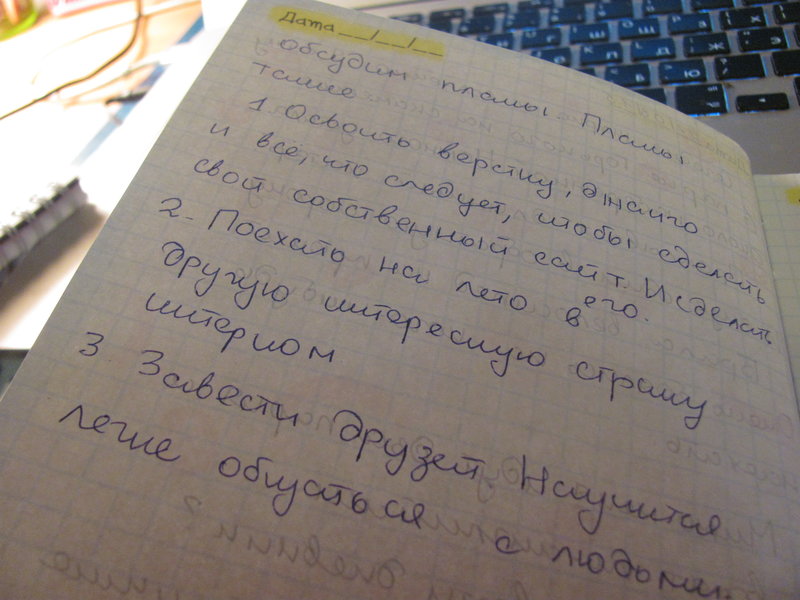 Дата __/__/__
Обсудим планы. Планы
такие
1. Освоить верстку, джанго
и все, что следует, чтобы сделать
свой собственный сайт. И сделать
его.
2. Поехать на лето в
другую интересную страну
интерном
3 Завести друзей Научится
легче общаться с людьми.